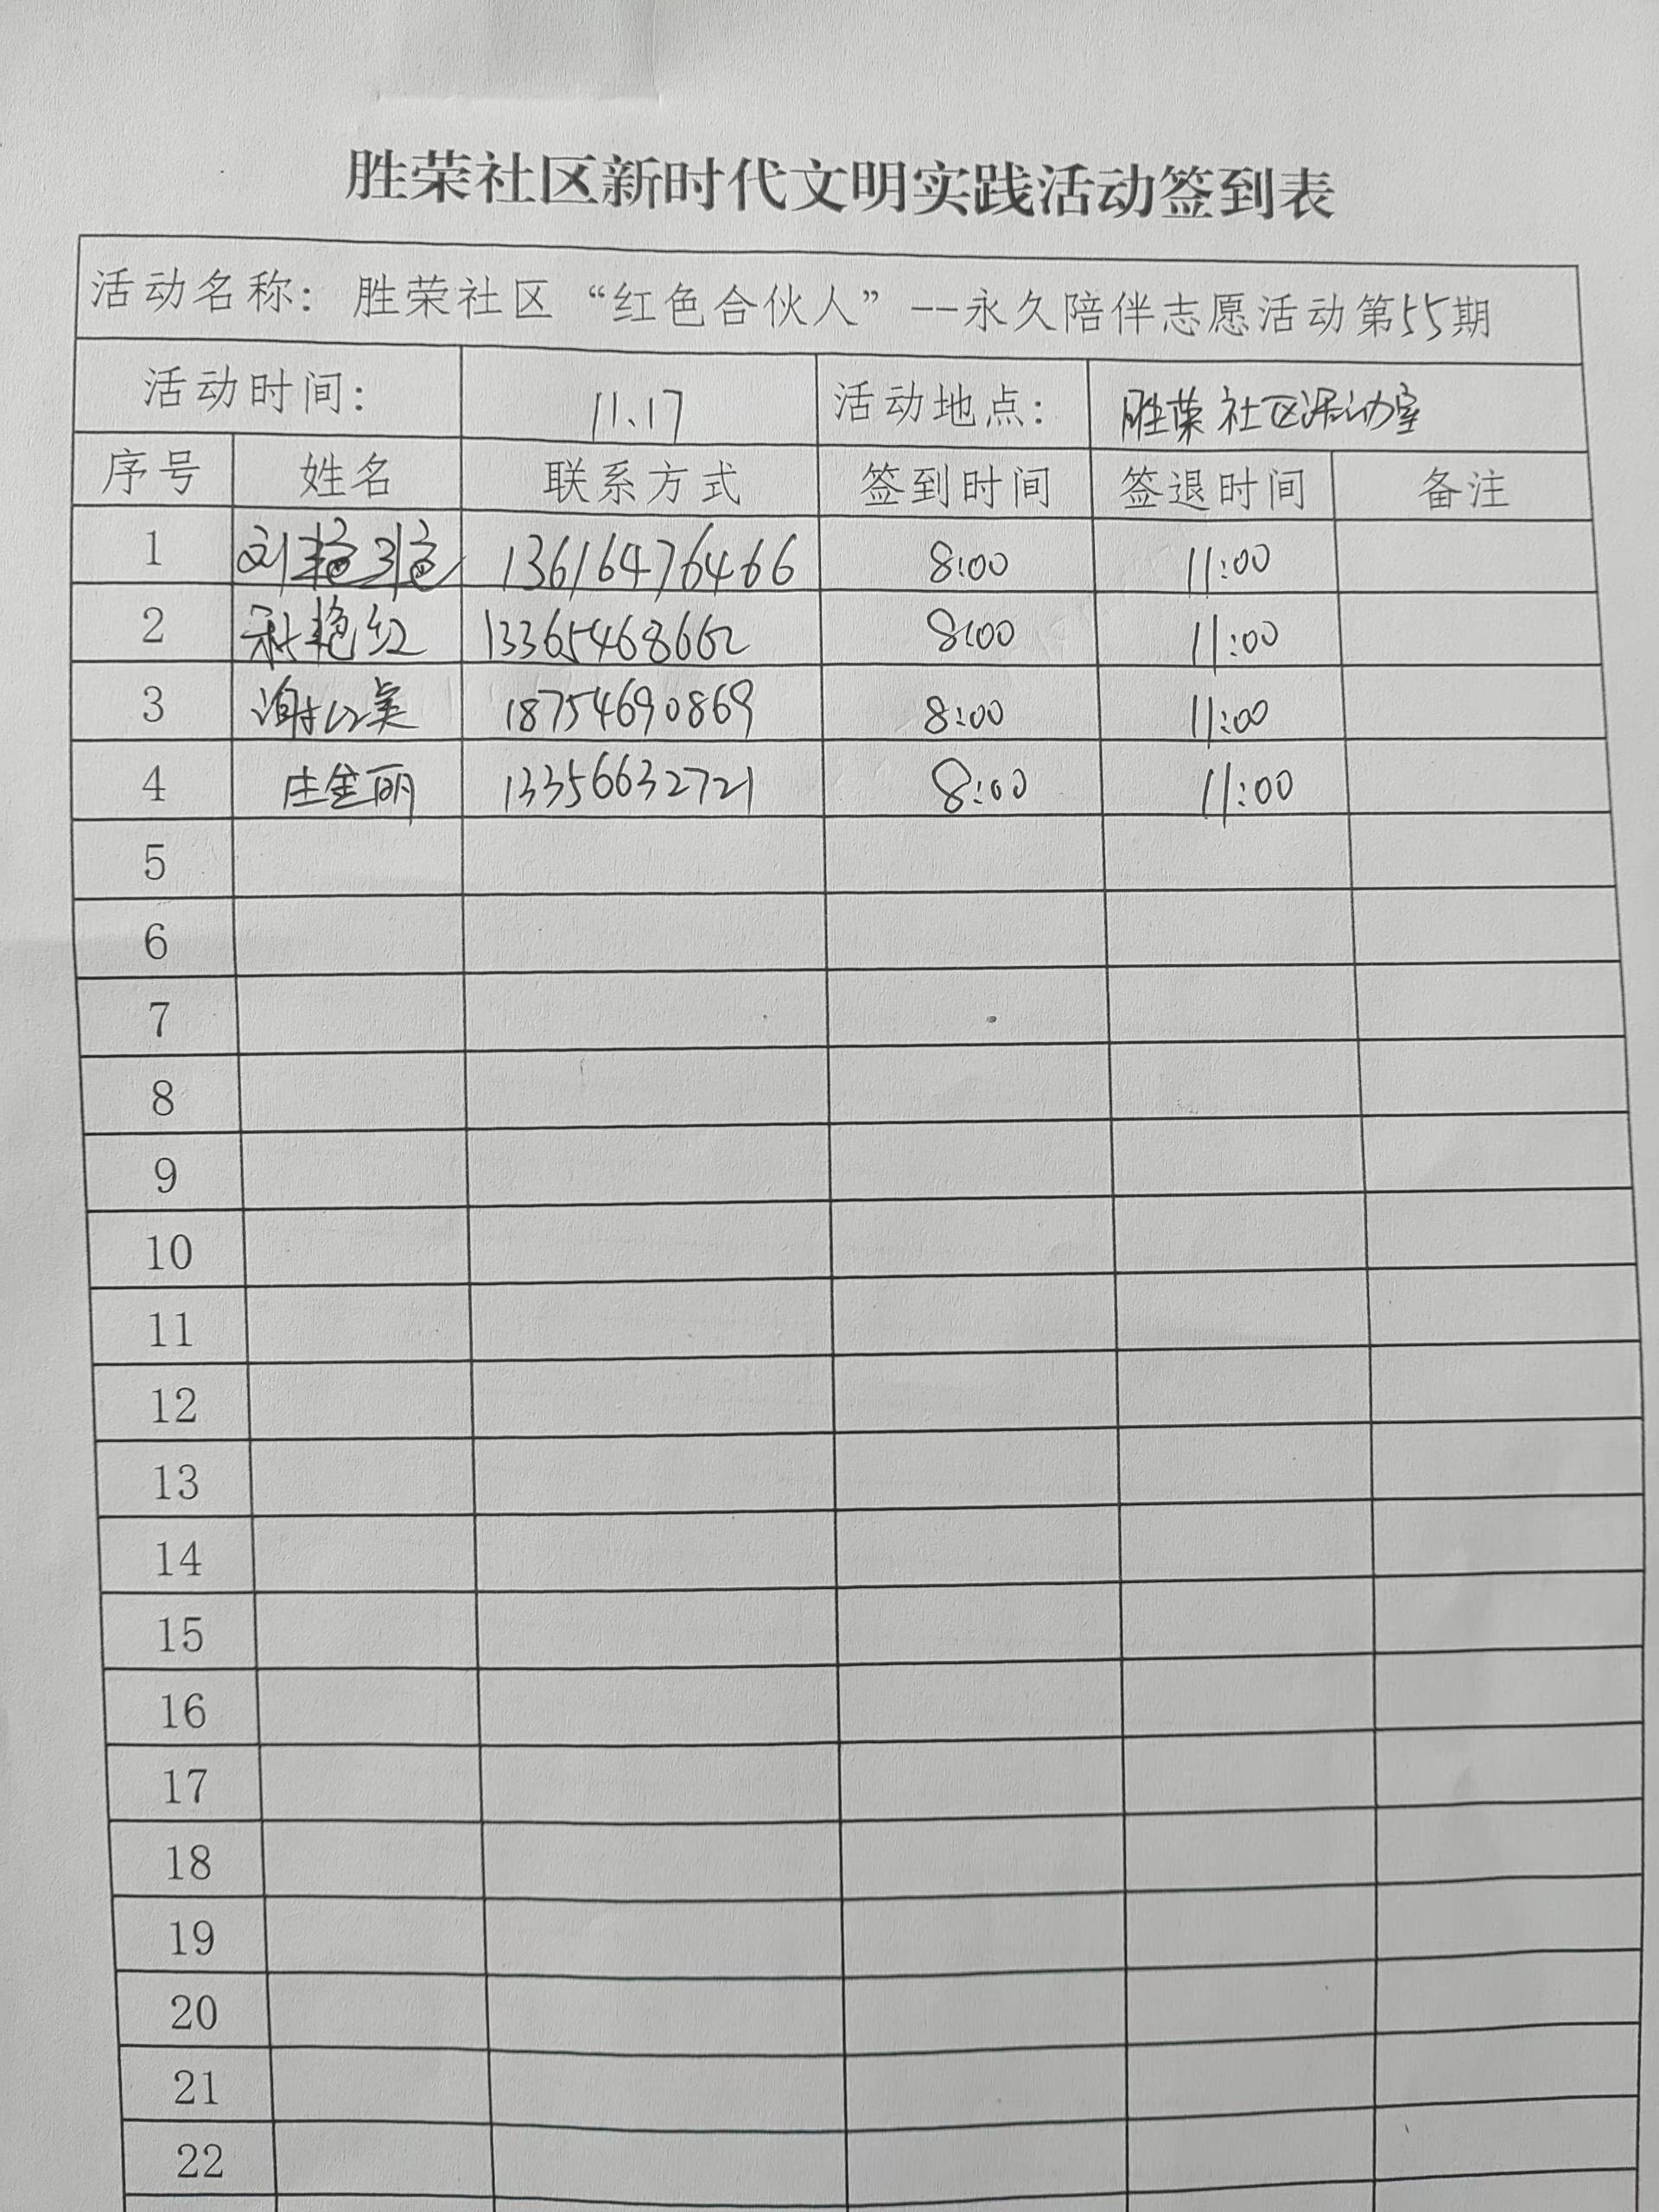 胜荣社区新时代文明实践活动签到表
活动名称：胜荣社区“红色合伙人”--永久陪伴志愿活动第55期
活动时间： 11.17 活动地点： 胜荣社区活动室
序号 姓名 联系方式 签到时间 签退时间 备注
1 刘 13616476466 8:00 11:00
2 艳红 13365468662 8:00 11:00
3 谢 英 18754690869 8:00 11:00
4 庄金丽 13356632721 8:00 11:00
5
6
7
8
9
10
11
12
13
14
15
16
17
18
19
20
21
22